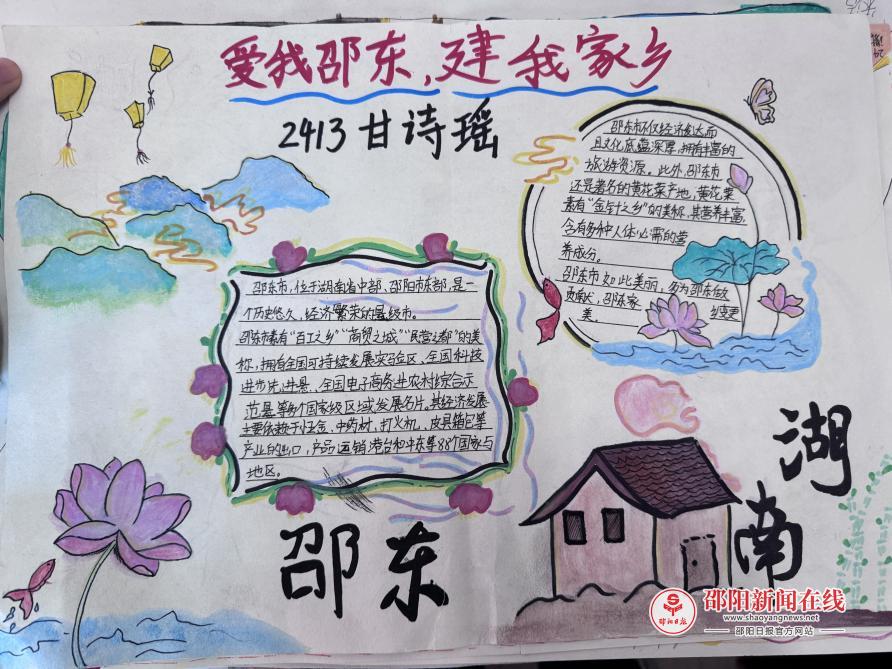 爱我邵东,建我家乡
2413 甘诗瑶
邵东市不仅经济发达而
且文化底蕴深厚,拥有丰富的
旅游资源。此外,邵东市
还是著名的黄花菜产地,黄花菜
素有“金针之乡”的美称,其营养丰富,
含有多种人体必需的营
养成分。
邵东市如此美丽,多为邵东做
贡献,邵东家
变更
美
邵东市,位于湖南省中部、邵阳市东部,是一
个历史悠久、经济繁荣的县级市。
邵东市素有“百工之乡”“商贸之城”“民营之都”的美
称,拥有全国可持续发展实验区、全国科技
进步先进县、全国电子商务业农村综合示
范县等多个国家级区域发展名片。其经济发展
主要依赖于五金、中药材、打火机、皮具箱包等
产业的出口,产品运销港台和中东等88个国家与
地区。
邵东
湖南
邵阳日报
邵阳新闻在线
www.shaoyangnews.net
邵阳日报官方网站